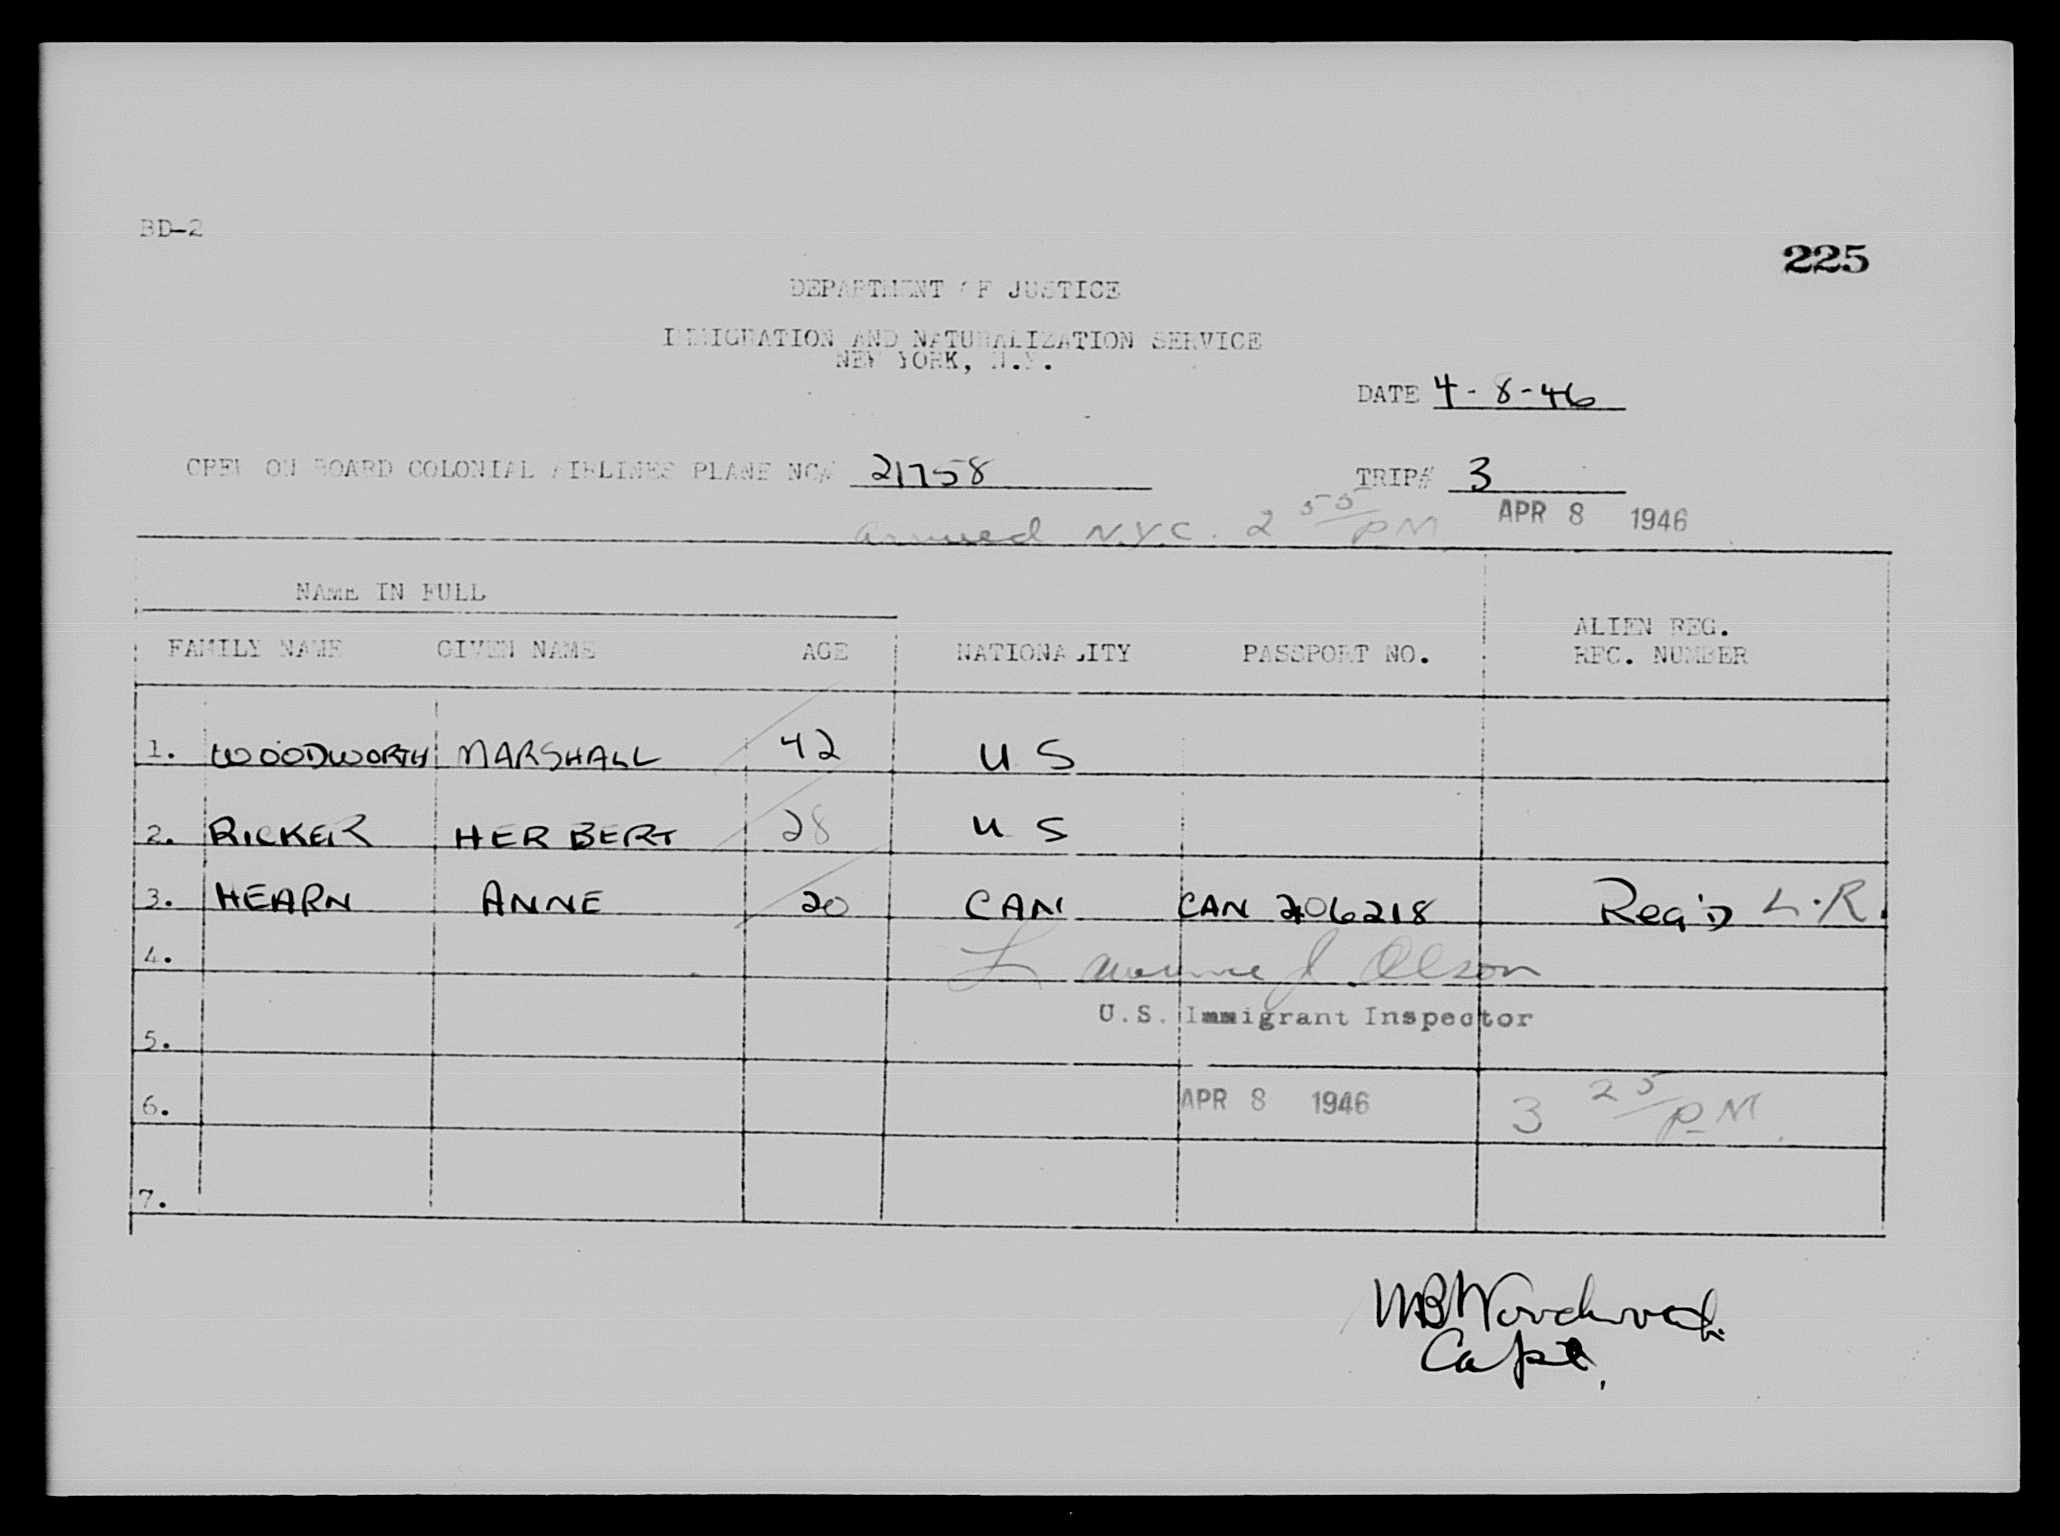 BD-2
225
DEPARTMENT OF JUSTICE
IMMIGRATION AND NATURALIZATION SERVICE
NEW YORK, N.Y.
DATE 4-8-46
CREW ON BOARD COLONIAL AIRLINES PLANE NO# 21758 TRIP# 3
arrived N.Y.C. 2 55/PM APR 8 1946
NAME IN FULL
FAMILY NAME GIVEN NAME AGE NATIONALITY PASSPORT NO. ALIEN REG. REC. NUMBER
1. WOODWORTH MARSHALL 42 U S
2. RICKER HERBERT 28 U S
3. HEARN ANNE 20 CAN CAN 206218 Reg'D L.R.
4. Lawrence J. Olson
U.S. Immigrant Inspector
5.
6. APR 8 1946 3 25/PM
7.
MBWoodworth
Capt.